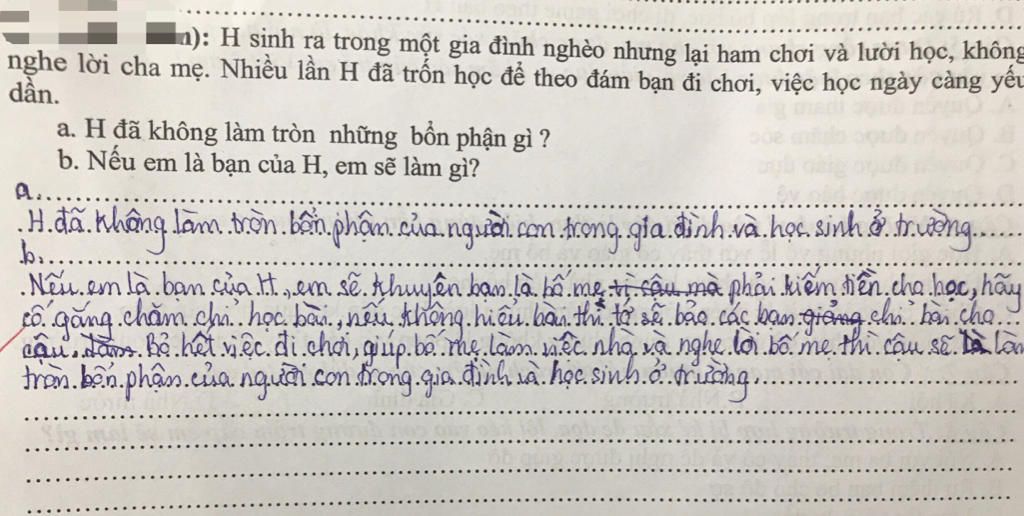 ): H sinh ra trong một gia đình nghèo nhưng lại ham chơi và lười học, không
nghe lời cha mẹ. Nhiều lần H đã trốn học để theo đám bạn đi chơi, việc học ngày càng yếu
dần.
a. H đã không làm tròn những bổn phận gì ?
b. Nếu em là bạn của H, em sẽ làm gì?
a.
H đã không làm tròn bổn phận của người con trong gia đình và học sinh ở trường
b.
Nếu em là bạn của H, em sẽ khuyên bạn là bố mẹ vì cậu mà phải kiếm tiền cho học, hãy
cố gắng chăm chỉ học bài, nếu không hiểu bài thì tớ sẽ bảo các bạn giảng chỉ bài cho
cậu, làm Bỏ hết việc đi chơi, giúp bố mẹ làm việc nhà và nghe lời bố mẹ thì cậu sẽ là làm
tròn bổn phận của người con trong gia đình và học sinh ở trường.